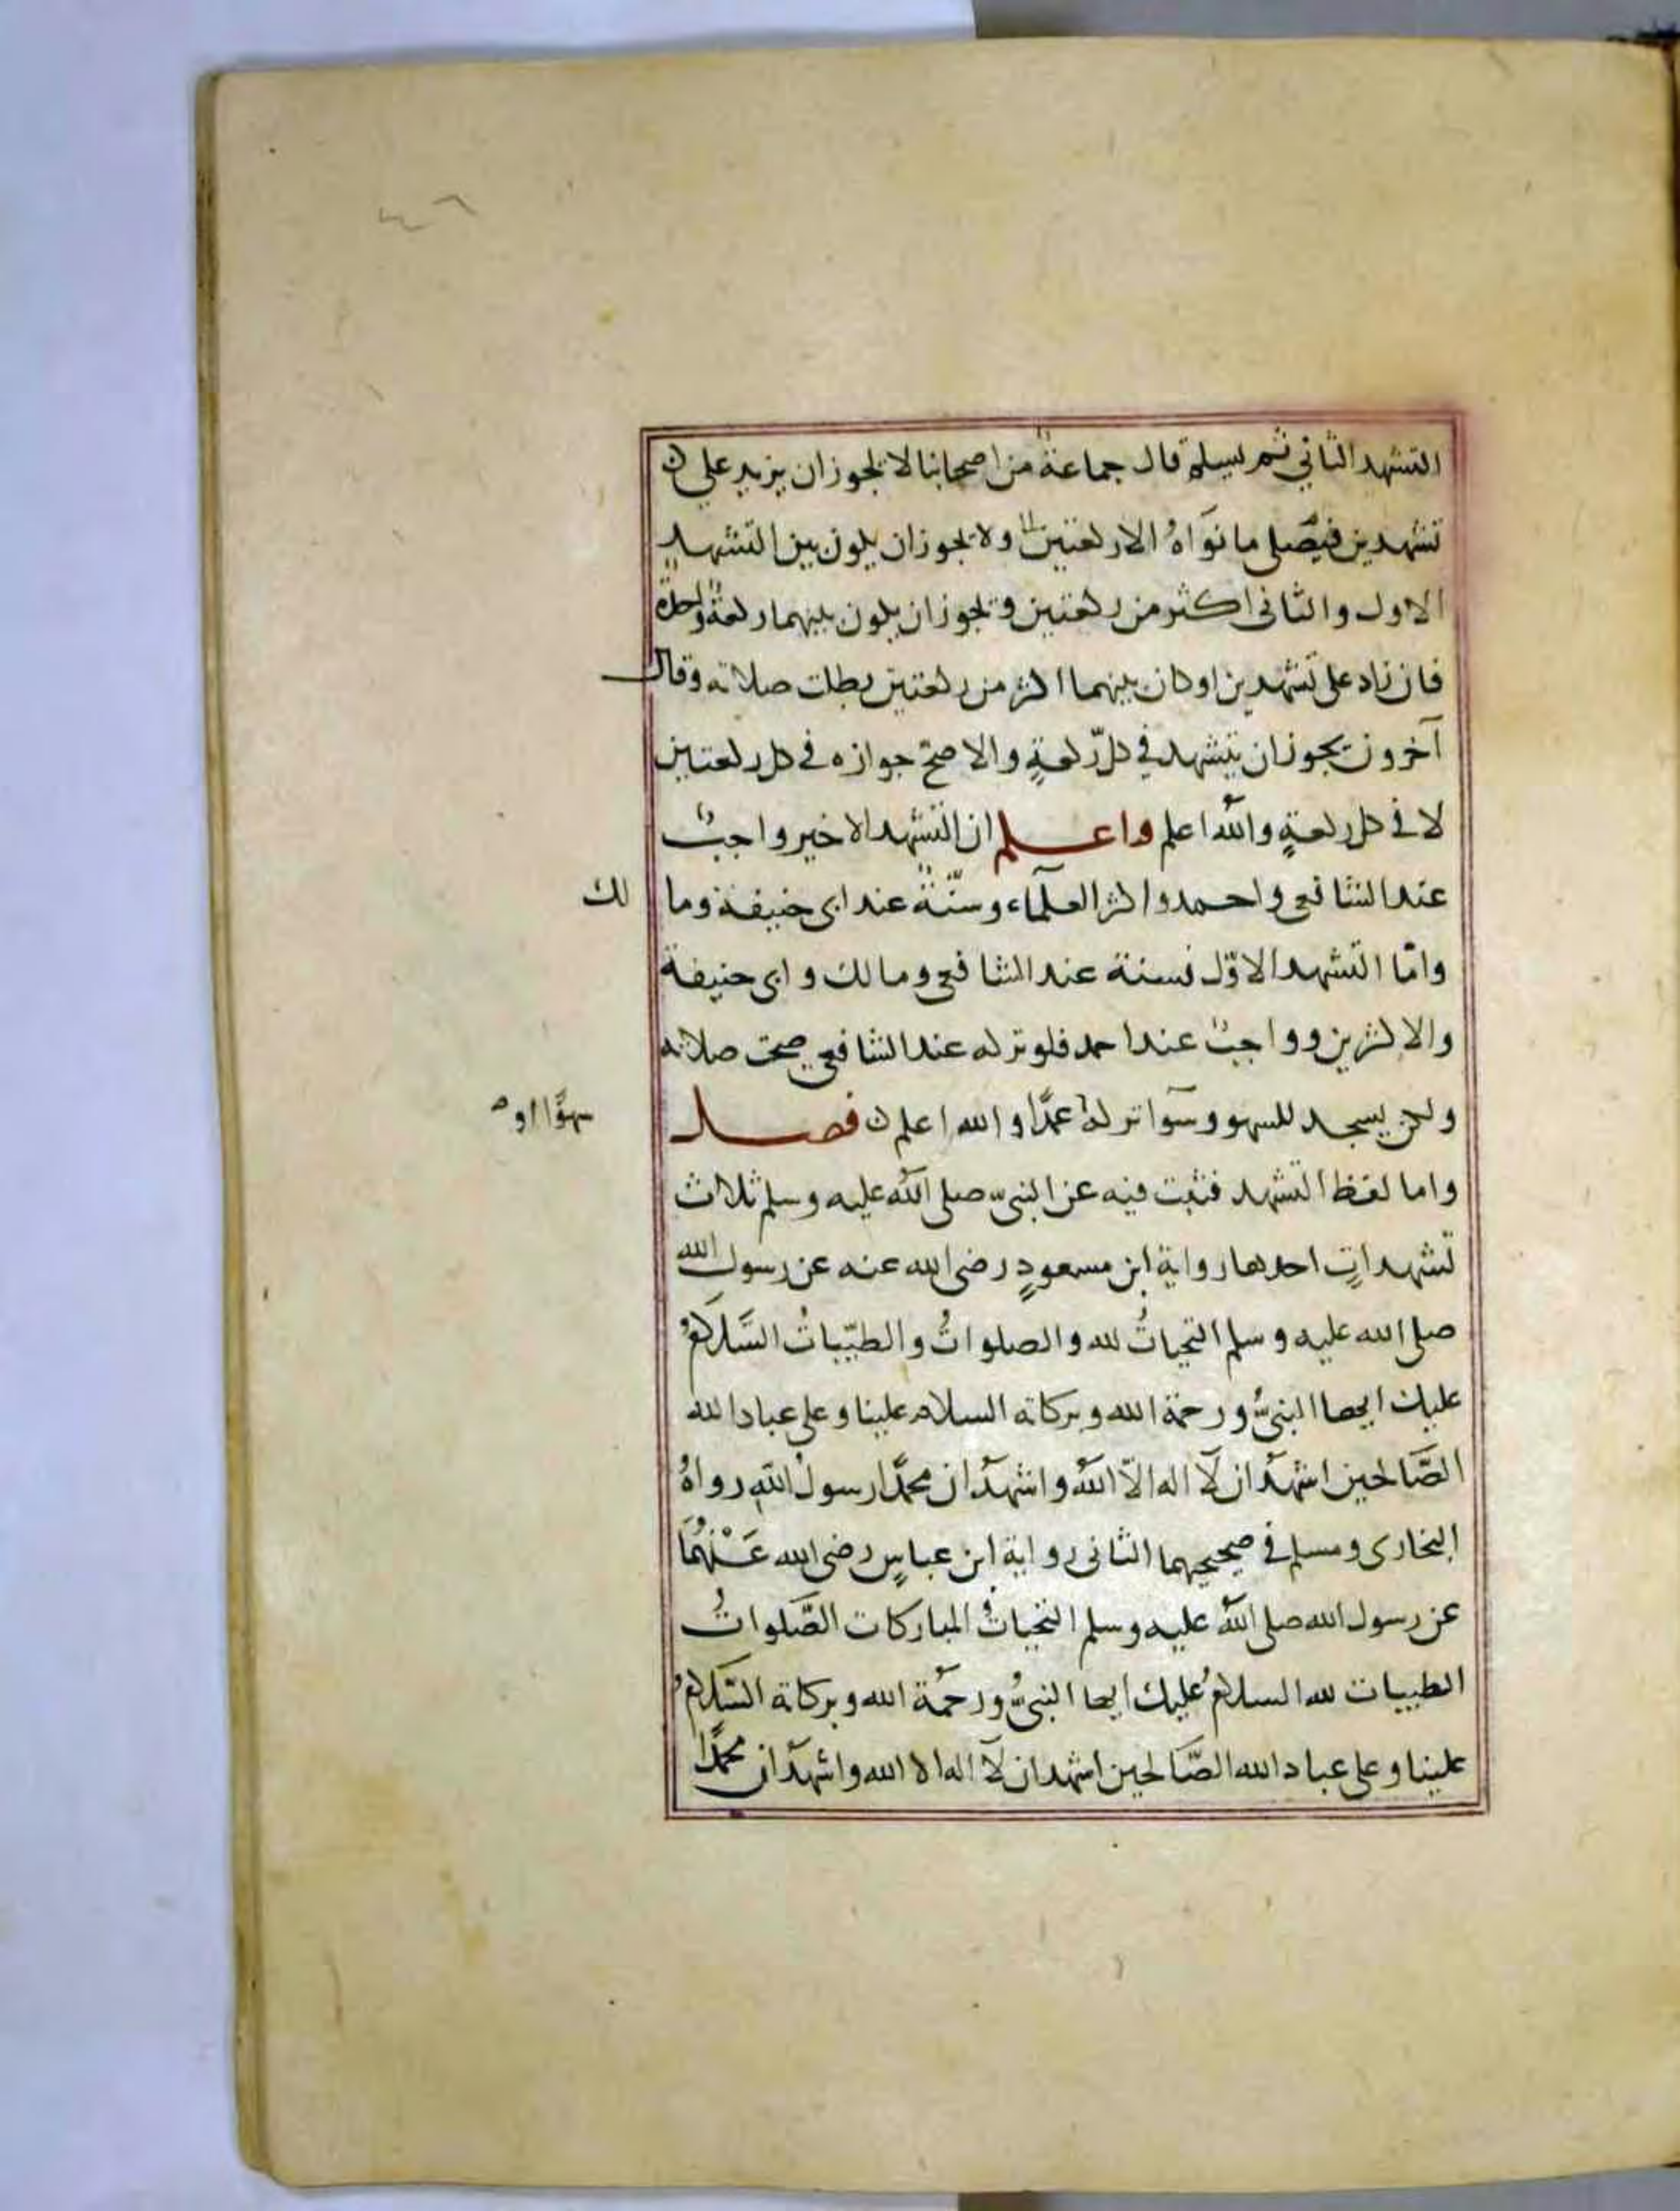 التشهد الثاني ثم يسلم قال جماعة من اصحابنا لا يجوز ان يزيد علي
تشهدين فيصلى ما نواه الا ركعتين ولا يجوز ان يكون بين التشهد
الاول والثانى اكثر من ركعتين ويجوز ان يكون بينهما ركعة واحدة
فان زاد على تشهدين او كان بينهما اكثر من ركعتين بطلت صلاته وقال
آخرون يجوز ان يتشهد في كلّ ركعةٍ والاصحّ جوازه فى كل ركعتين
لا فى كل ركعةٍ والله اعلم واعلم ان التشهد الاخير واجبٌ
عند الشافعى واحمد واكثر العلمآء وسنّةٌ عند ابى حنيفة وما
لك
وامّا التشهد الاوّل فسنة عند الشافعى ومالك وابى حنيفة
والاكثرين وواجبٌ عند احمد فلو تركه عند الشافعي صحت صلاته
ولكن يسجد للسهو وسوآ تركهُ عمدًا والله اعلم فصل
سهوًا او
واما لفظ التشهد فثبت فيه عن النبىّ صلى الله عليه وسلم ثلاث
تشهداتٍ احدها رواية ابن مسعودٍ رضى الله عنه عن رسول الله
صلى الله عليه وسلم التحياتُ لله والصلواتُ والطيّباتُ السَّلامُ
عليك ايها النبىُّ ورحمة الله وبركاته السلام علينا وعلى عباد الله
الصَّالحين اشهد ان لآ اله الّا اللهُ واشهد ان محمّدًا رسولُ اللهِ رواهُ
البخارى ومسلم فى صحيحيهما الثانى رواية ابن عباسٍ رضى الله عَنْهُمَا
عن رسول الله صلى الله عليه وسلم التحياتُ المباركات الصَّلواتُ
الطيبات لله السلامُ عليك ايها النبىُّ ورحمَة الله وبركاته السَّلامُ
علينا وعلى عباد الله الصَّالحين اشهد ان لآ اله الا الله واشهد ان محمّدًا